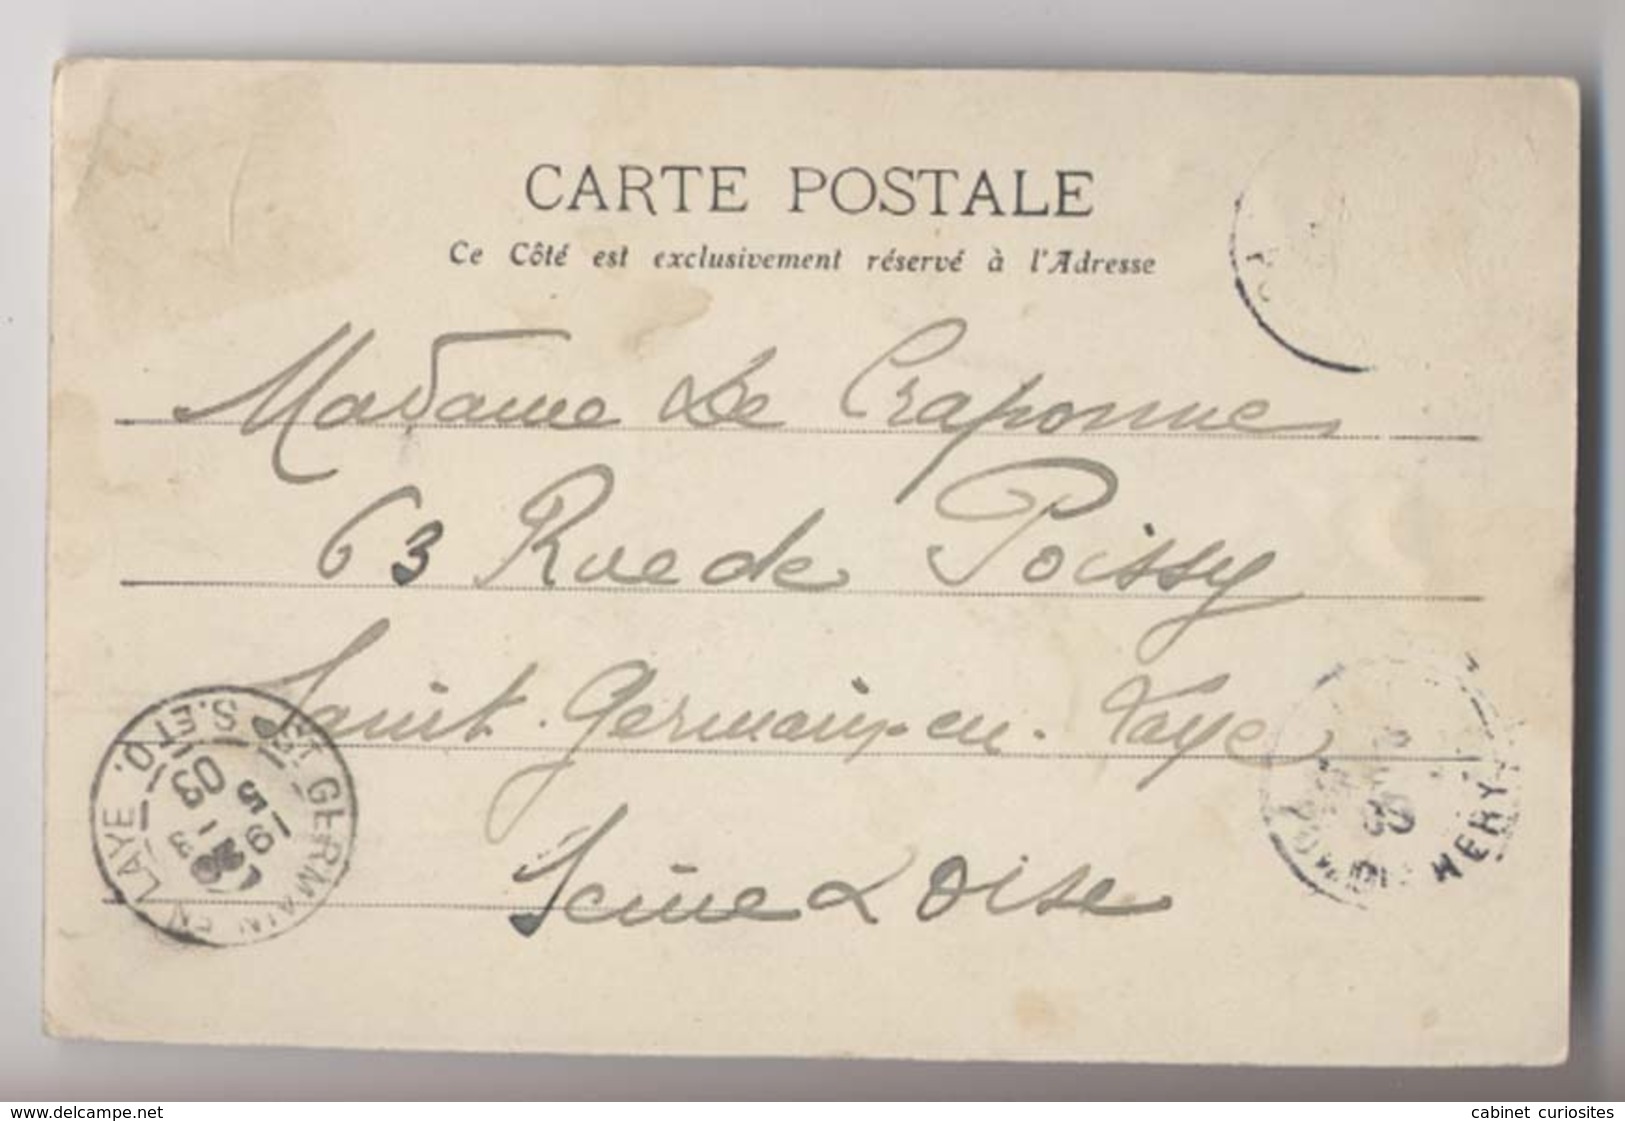 CARTE POSTALE
Ce Côté est exclusivement réservé à l'Adresse
Madame De Craponne
63 Rue de Poissy
Saint-Germain-en-Laye
Seine & Oise
ST GERMAIN EN LAYE. S.ET.O.
19
5
03
HERY
www.delcampe.net
cabinet curiosites